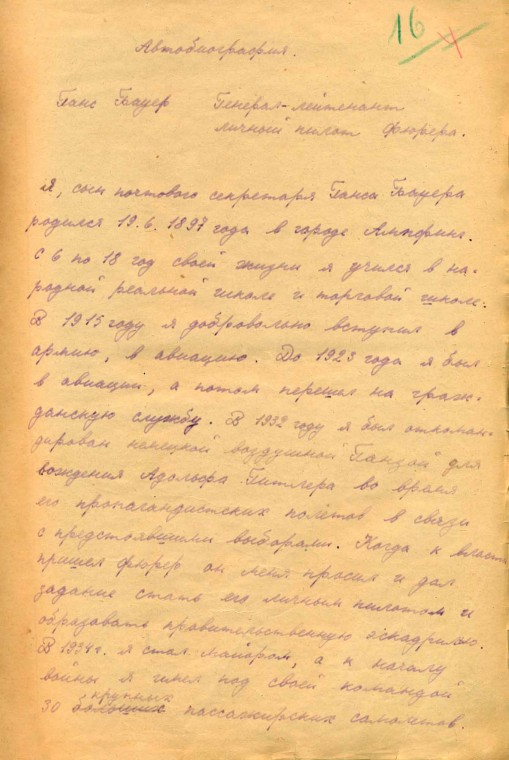 16
Автобиография.
Ганс Бауер Генерал-лейтенант
личный пилот фюрера.
Я, сын почтового секретаря Ганса Бауера
родился 19.6.1897 года в городе Ампфинг.
С 6 по 18 год своей жизни я учился в на-
родной реальной школе и торговой школе.
В 1915 году я добровольно вступил в
армию, в авиацию. До 1923 года я был
в авиации, а потом перешел на граж-
данскую службу. В 1932 году я был откоман-
дирован немецкой воздушной Ганзой для
вождения Адольфа Гитлера во время
его пропагандистских полётов в связи
с предстоявшими выборами. Когда к власти
пришел фюрер он меня просил и дал
задание стать его личным пилотом и
образовать правительственную эскадрилью.
В 1934г. я стал майором, а к началу
войны я имел под своей командой
крупных
30 больших пассажирских самолётов.